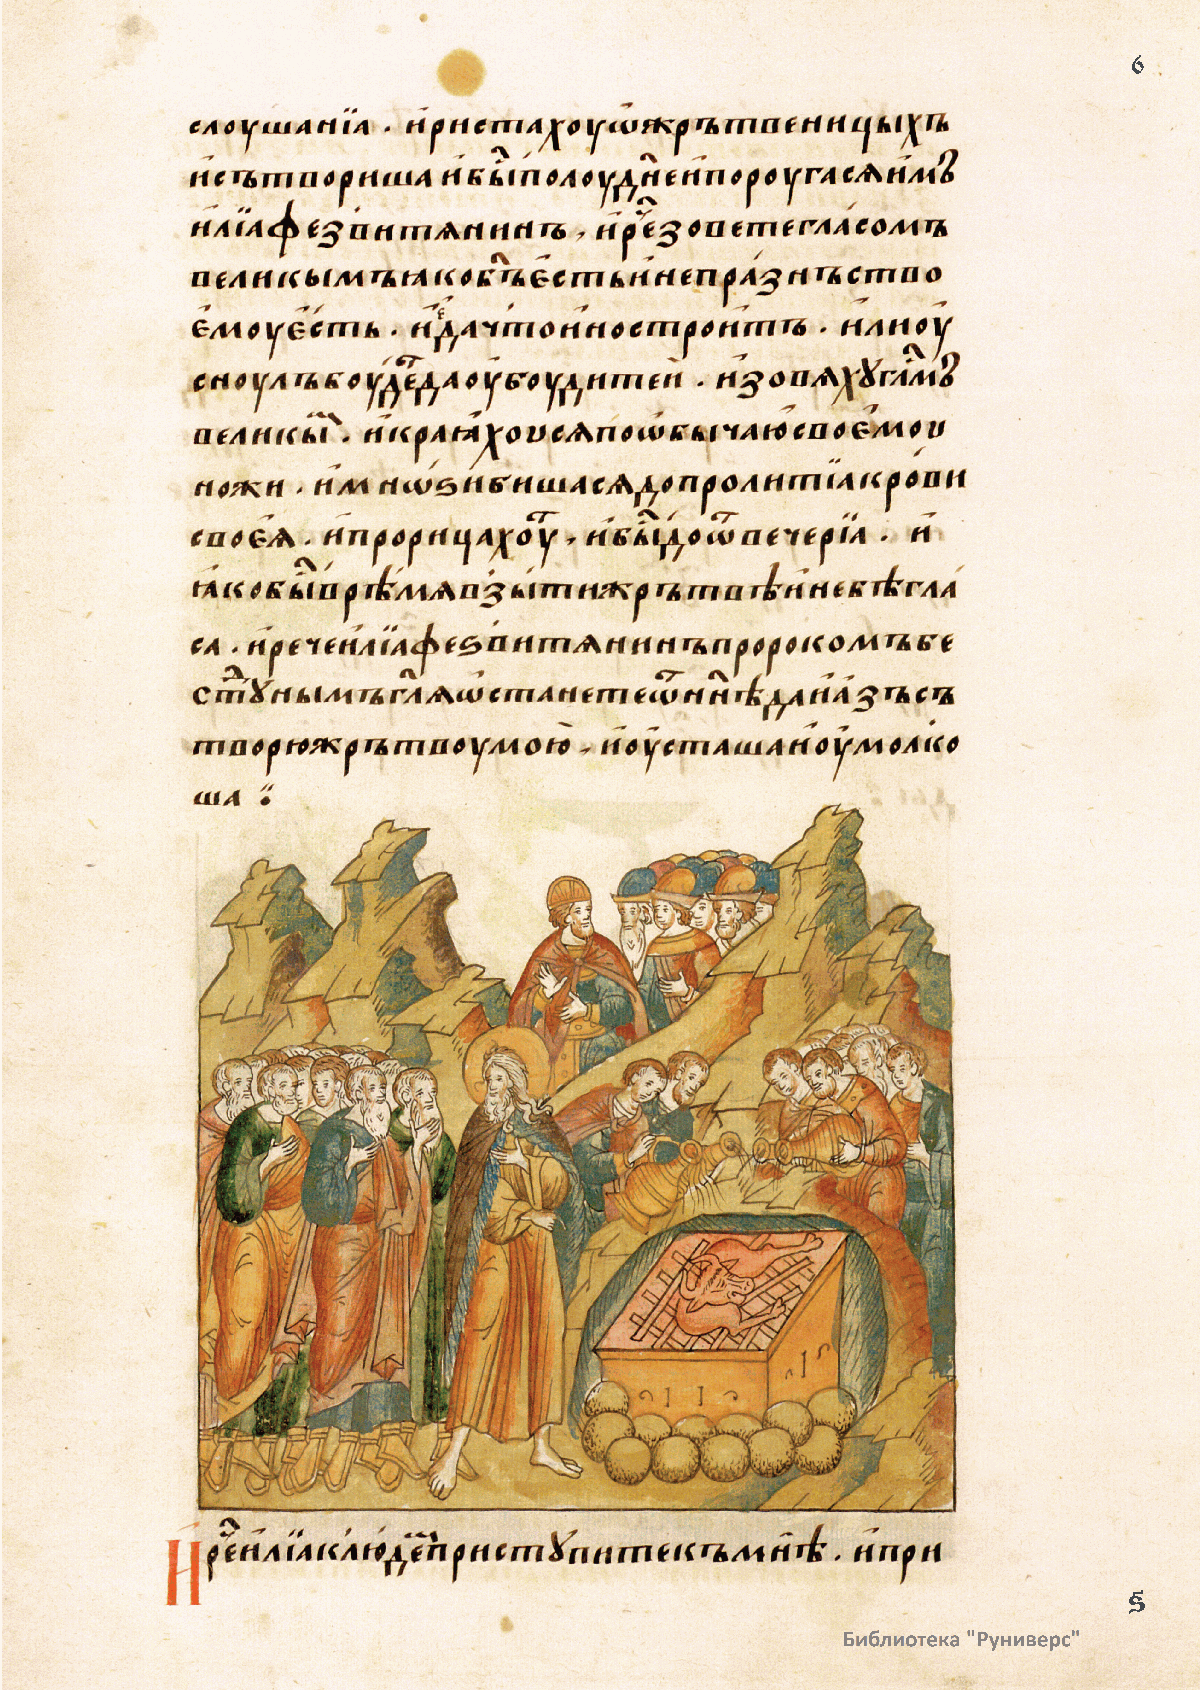 6
слоушанїа · и҆ристахоуѡ҆жрътвеницыхъ
и҆сътвориша и҆бы́ⷧ҇полоуднⷧ҇еи҆пороугасѧи҆мꙋ
и҆лїафезвитѧнинъ , и҆рⷱ҇езоветегла́сомъ
великымъꙗкобг҃ъе҆стьи҆непра́знъство
е҆моуе҆́сть · и҆ⷷдачт́ои҆ностроитъ · и҆лиоу҆
сноулъбоудⷭ҇едаоу҆боудитеи҆ · и҆зовѧхꙋглⷭ҇мꙋ
великы́ⷨ · и҆краꙗ҆хоусѧпоѡ҆бычаюсвое҆моу
ножи · и҆мнѡ҆ѕибишасѧдопролитїакро́ви
свое҆ѧ · и҆прорицахоу҆ⷮ , и҆бы́ⷧ҇доѿвечерїа · и҆
ꙗ҆кобы́ⷧ҇врѣ́мѧвзы́тижрътвѣи҆небѣгла
са · и҆речеи҆лїафеѕвитѧнинъпророкомъбе
стⷣꙋнымъгл҃ѧѿстанетеѿнн҃ѣдаи҆а҆зъсъ
творюжрътвоумою̀ , и҆оу҆сташаи҆оу҆молко
ша ⁘
И҆рⷱ҇еи҆лїаклю́дⷨ҇епристꙋпитекъмнѣ̀ · и҆при
ѕ
Библиотека "Руниверс"